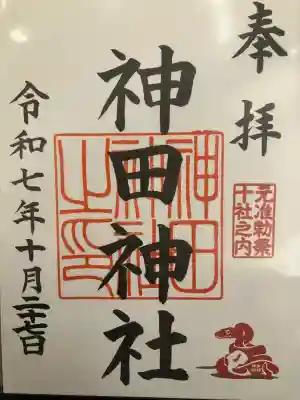 奉拝
元准勅祭
十社之内
神田神社
神田
神社
之印
令和七年十月二十七日